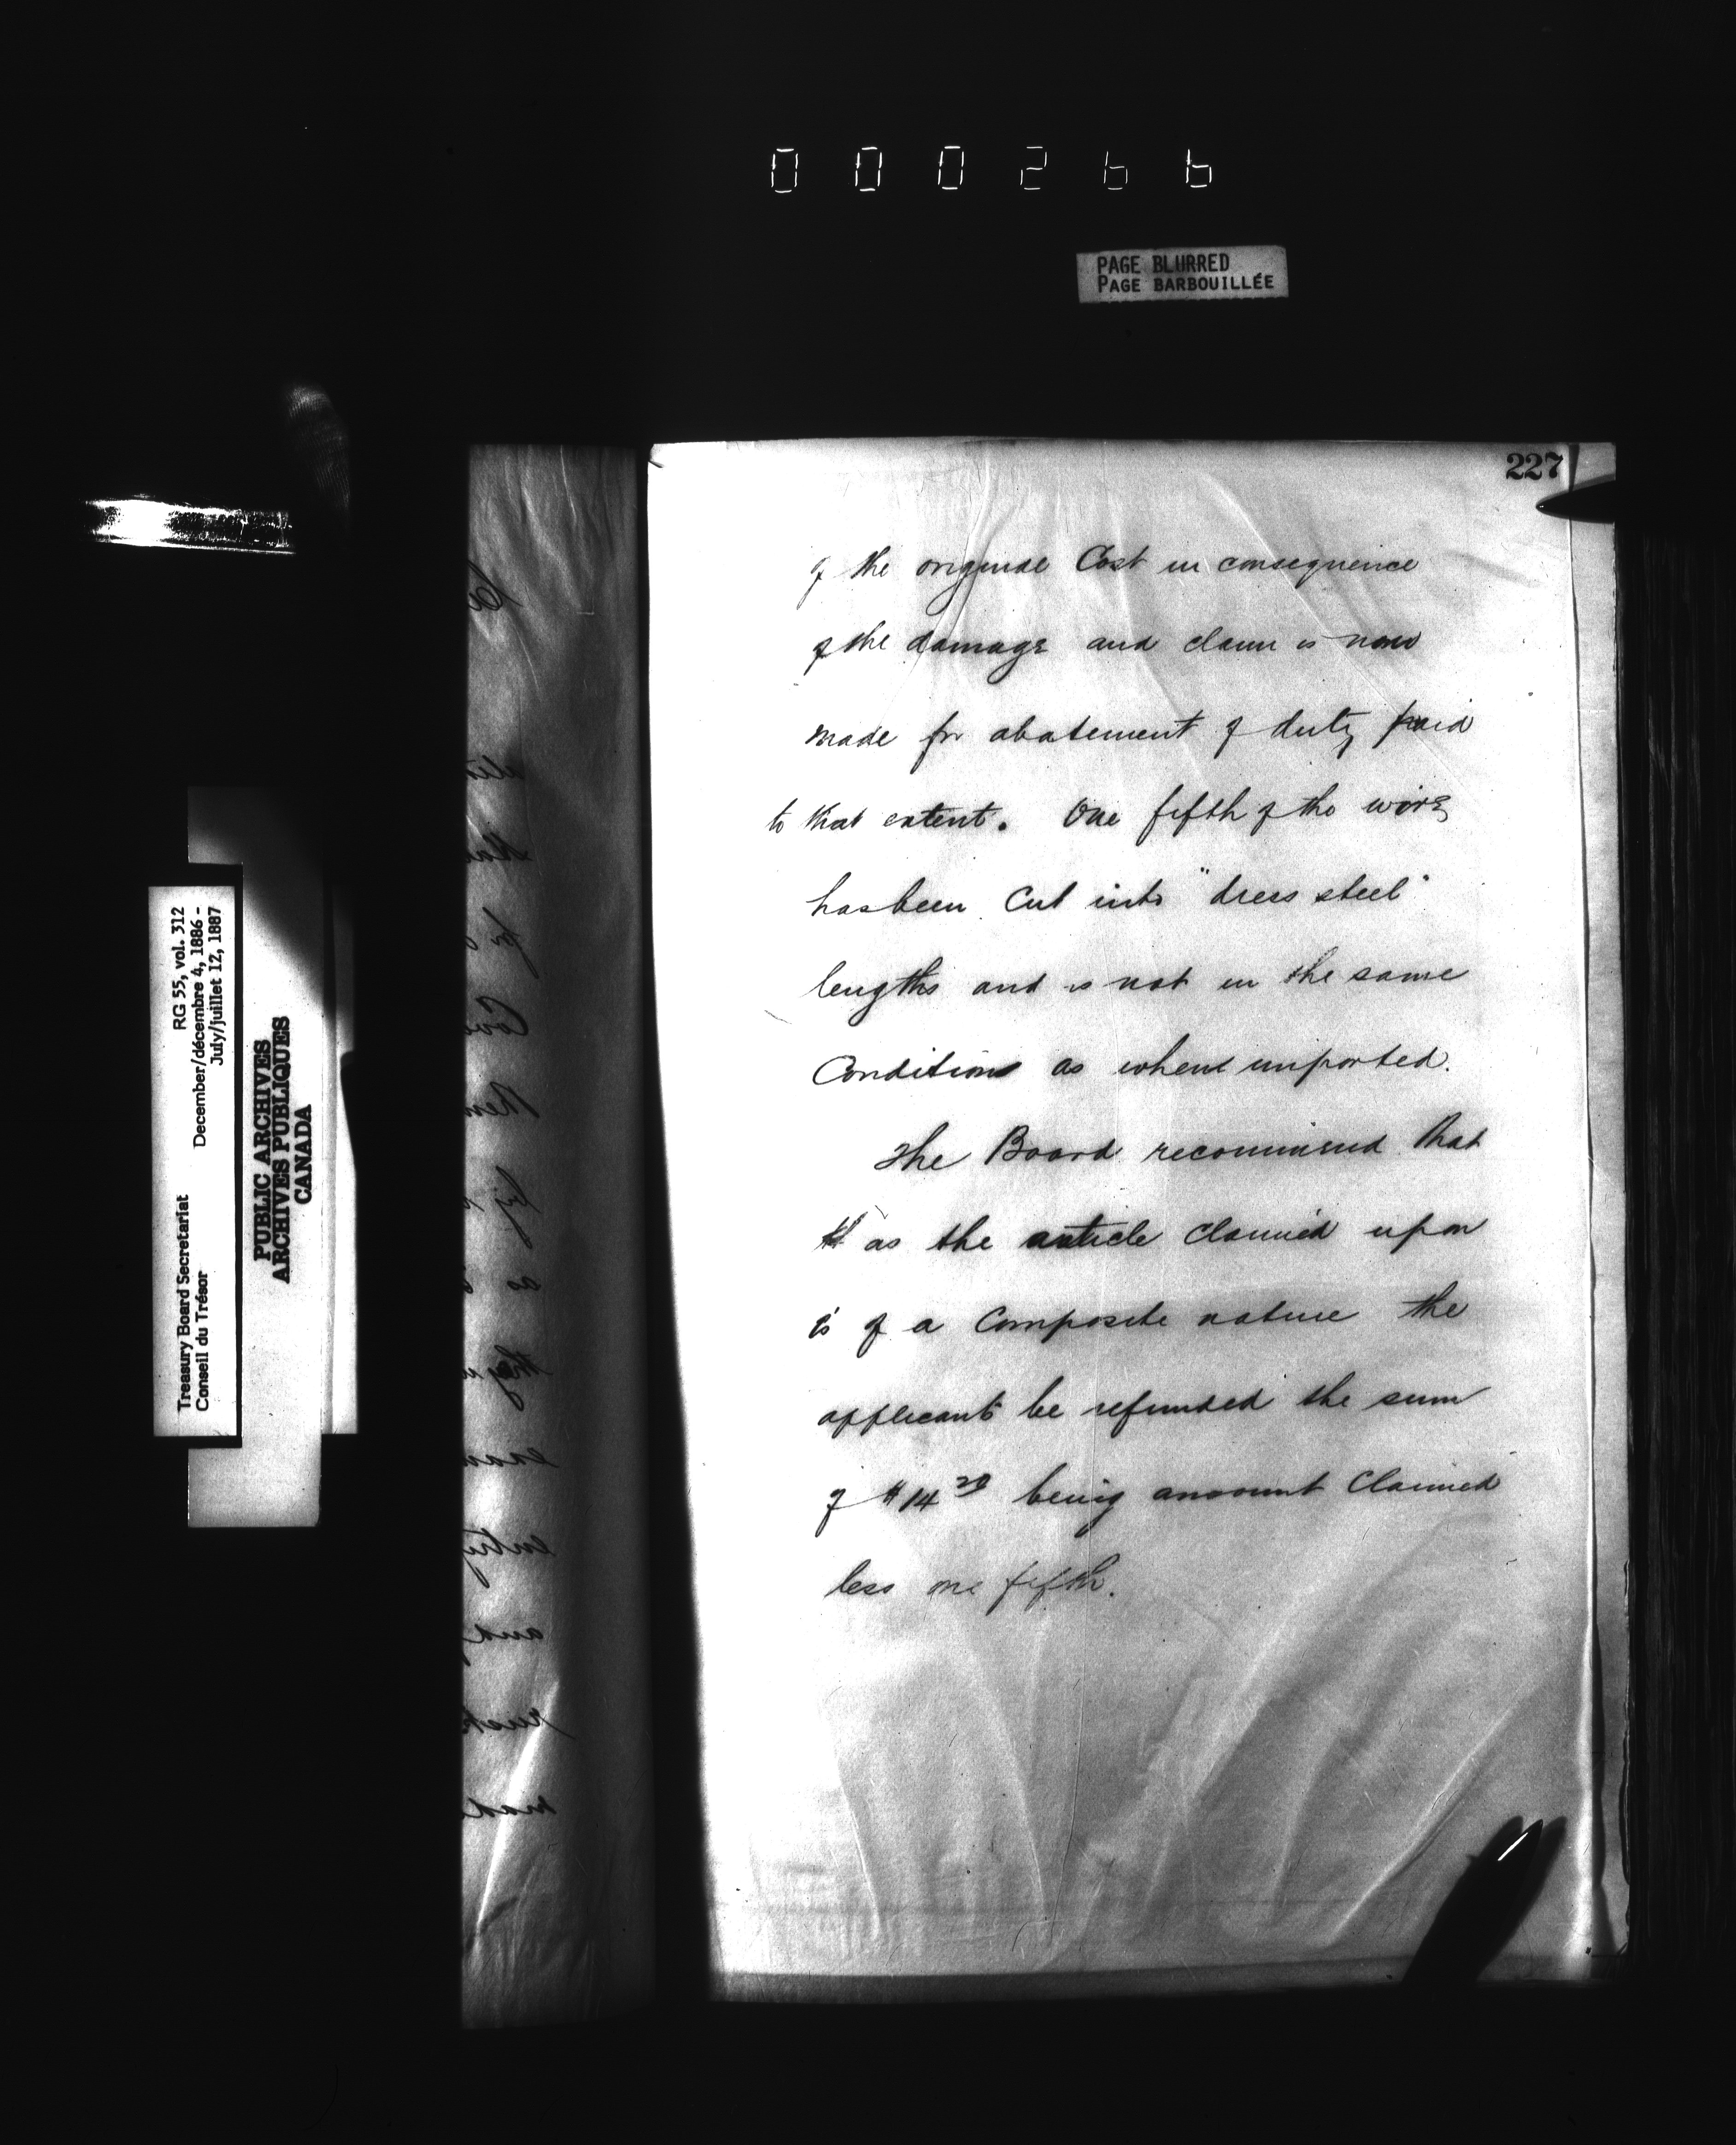 000266
PAGE BLURRED
PAGE BARBOUILLÉE
227
of the original Cost in consequence
of the damage and claim is now
made for abatement of duty paid
to that extent. One fifth of the wire
has been Cut into "dress steel"
lengths and is not in the same
Condition as when imported.
The Board recommend that
as the article claimed upon
is of a Composite nature the
applicants be refunded the sum
of $14 20 being amount Claimed
less one fifth.
Treasury Board Secretariat
Conseil du Trésor
RG 55, vol. 312
December/décembre 4, 1886 -
July/juillet 12, 1887
PUBLIC ARCHIVES
ARCHIVES PUBLIQUES
CANADA